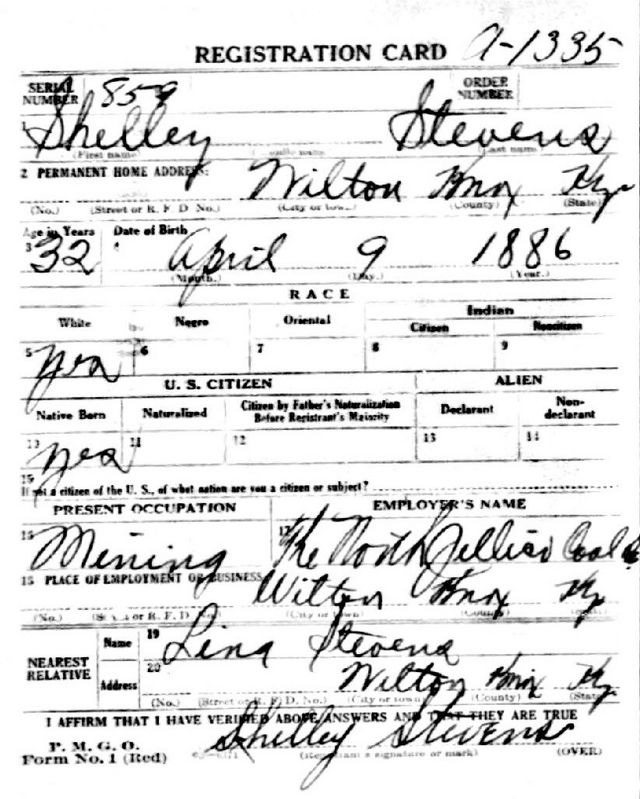 REGISTRATION CARD A-1335
SERIAL NUMBER 859 ORDER NUMBER
Shelley Stevens
(First name) (Middle name) (Last name)
2 PERMANENT HOME ADDRESS:
Wilton Knox Ky
(No.) (Street or R. F. D. No.) (City or town) (County) (State)
Age in Years Date of Birth
3 32 4 April 9 1886
(Month.) (Day.) (Year.)
RACE
White Negro Oriental Indian
Citizen Noncitizen
5 Yes 6 7 8 9
U. S. CITIZEN ALIEN
Native Born Naturalized Citizen by Father's Naturalization Before Registrant's Majority Declarant Non-declarant
10 Yes 11 12 13 14
15
If not a citizen of the U. S., of what nation are you a citizen or subject?
PRESENT OCCUPATION EMPLOYER'S NAME
16 Mining 17 The North Jellico Coal Co
18 PLACE OF EMPLOYMENT OR BUSINESS
Wilton Knox Ky
(No.) (Street or R. F. D. No.) (City or town) (County) (State)
NEAREST RELATIVE
Name 19 Lina Stevens
Address 20 Wilton Knox Ky
(No.) (Street or R. F. D. No.) (City or town) (County) (State)
I AFFIRM THAT I HAVE VERIFIED ABOVE ANSWERS AND THAT THEY ARE TRUE
P. M. G. O.
Form No. 1 (Red) Shelley Stevens
(Registrant's signature or mark) (OVER)